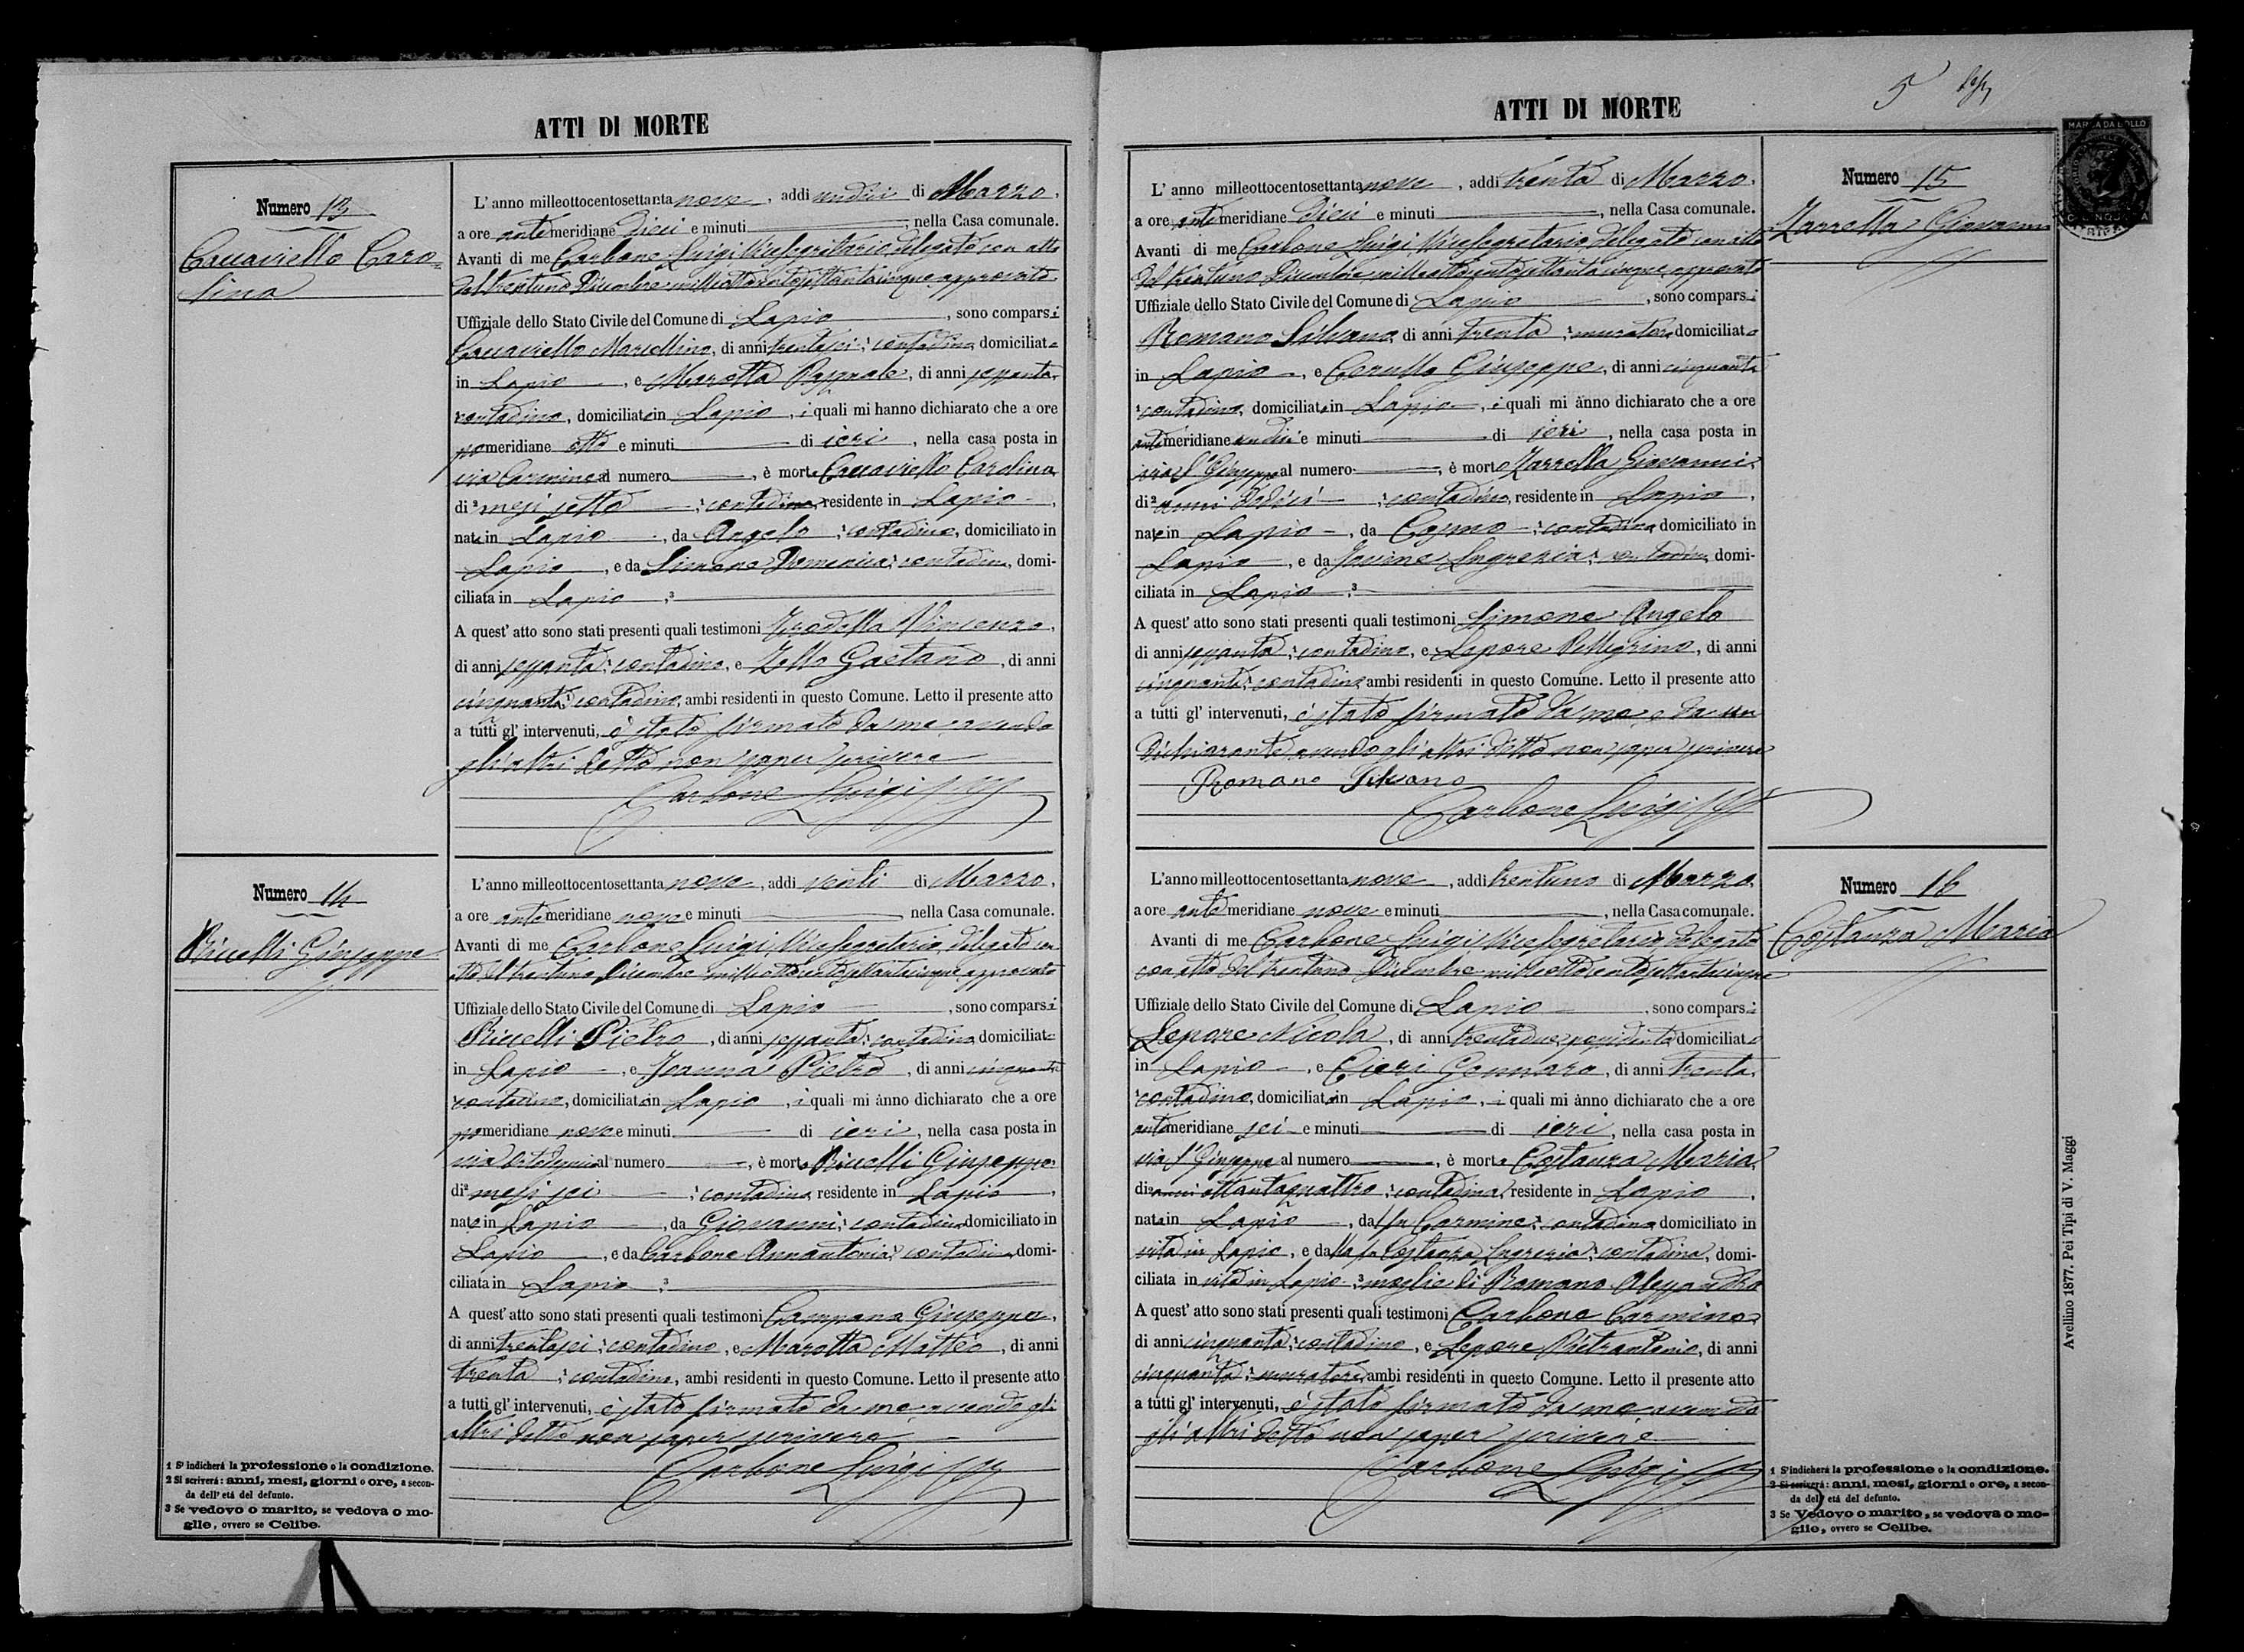 ATTI DI MORTE
Numero 13
Caccaviello Caro=
lina
L' anno milleottocentosettanta nove, addi undici di Marzo,
a ore antemeridiane Dieci e minuti , nella Casa comunale.
Avanti di me Carbone Luigi Vicesegretario delegato con atto
del trentuno Dicembre milleottocentosettantacinque approvato
Uffiziale dello Stato Civile del Comune di Lapio , sono comparsi
Caccaviello Marcellino, di anni trentasei; 1 contadino domiciliato
in Lapio , e Marotta Pasquale, di anni sessanta,
1 contadino, domiciliato in Lapio , i quali mi hanno dichiarato che a ore
pomeridiane otto e minuti di ieri , nella casa posta in
via Carmine al numero , è morta Caccaviello Carolina
di 2 mesi sette ; 1 contadina residente in Lapio ,
nata in Lapio , da Angelo ; 1 contadino, domiciliato in
Lapio , e da Simone Domenica; 1 contadina, domi-
ciliata in Lapio ; 3
A quest' atto sono stati presenti quali testimoni Vincenzo,
di anni sessanta; 1 contadino, e Zollo Gaetano , di anni
cinquanta; 1 contadino, ambi residenti in questo Comune. Letto il presente atto
a tutti gl' intervenuti, è stato firmato da me avendo
gli altri detto non saper scrivere
Carbone Luigi
Numero 14
Riccelli Giuseppe
L'anno milleottocentosettanta nove, addi venti di Marzo,
a ore antemeridiane nove e minuti nella Casa comunale.
Avanti di me Carbone Luigi Vicesegretario delegato con
atto del trentuno Dicembre milleottocentosettantacinque approvato
Uffiziale dello Stato Civile del Comune di Lapio , sono comparsi
Riccelli Pietro , di anni sessanta; 1 contadino domiciliato
in Lapio , e Joanna Pietro , di anni cinquanta
1 contadino, domiciliato in Lapio , i quali mi ànno dichiarato che a ore
pomeridiane nove e minuti di ieri , nella casa posta in
via al numero , è morto Riccelli Giuseppe
di 2 mesi sei ; 1 contadino residente in Lapio ,
nato in Lapio , da Giovanni; 1 contadino domiciliato in
Lapio , e da Carbone Annantonia; 1 contadina, domi-
ciliata in Lapio ; 3
A quest' atto sono stati presenti quali testimoni Campana Giuseppe,
di anni trentasei; 1 contadino, e Marotta Matteo , di anni
trenta ; 1 contadino, ambi residenti in questo Comune. Letto il presente atto
a tutti gl' intervenuti, è stato firmato da me avendo gli
altri detto non saper scrivere
Carbone Luigi
1 S' indicherà la professione o la condizione.
2 Si scriverà: anni, mesi, giorni o ore, a secon-
da dell' età del defunto.
3 Se vedovo o marito, se vedova o mo-
glie, ovvero se Celibe.
5
ATTI DI MORTE
MARCA DA BOLLO
Numero 15
Zarrella Giovanni
L' anno milleottocentosettanta nove , addi trenta di Marzo,
a ore antemeridiane Dieci e minuti , nella Casa comunale.
Avanti di me Carbone Luigi Vicesegretario delegato con atto
del trentuno Dicembre milleottocentosettantacinque approvato
Uffiziale dello Stato Civile del Comune di Lapio , sono comparsi
Romano Silvano, di anni trenta ; 1 muratore domiciliato
in Lapio , e Cerullo Giuseppe, di anni cinquanta
1 contadino, domiciliato in Lapio , i quali mi ànno dichiarato che a ore
antimeridiane undici e minuti di ieri , nella casa posta in
via S. Giuseppe al numero , è morto Zarrella Giovanni,
di 2 anni Dodici ; 1 contadino, residente in Lapio ,
nato in Lapio , da Cosmo ; 1 contadino domiciliato in
Lapio , e da Jovine Lugrezia; 1 contadina domi-
ciliata in Lapio ; 3
A quest' atto sono stati presenti quali testimoni Simone Angelo
di anni sessanta; 1 contadino, e Lepore Pellegrino, di anni
cinquanta; 1 contadino ambi residenti in questo Comune. Letto il presente atto
a tutti gl' intervenuti, è stato firmato da me e da un
dichiarante avendo gli altri detto non saper scrivere
Romano Silvano
Carbone Luigi
Numero 16
Costanza Maria
L'anno milleottocentosettanta nove , addi trentuno di Marzo,
a ore antemeridiane nove e minuti , nella Casa comunale.
Avanti di me Carbone Luigi Vicesegretario delegato
con atto del trentuno Dicembre milleottocentosettantacinque
Uffiziale dello Stato Civile del Comune di Lapio , sono comparsi
Lepore Nicola , di anni trentadue possidente domiciliato
in Lapio , e Cieri Gennaro , di anni trenta,
1 contadino, domiciliato in Lapio , i quali mi ànno dichiarato che a ore
antemeridiane sei e minuti di ieri , nella casa posta in
via S. Giuseppe al numero , è morta Costanza Maria,
di 2 anni ottantaquattro; 1 contadina, residente in Lapio ,
nata in Lapio , dal fu Carmine; 1 contadino domiciliato in
vita in Lapio , e dalla fu Costanza Lugrezia; 1 contadina, domi-
ciliata in vita in Lapio ; 3 moglie di Romano Alessandro
A quest' atto sono stati presenti quali testimoni Carbone Carmine
di anni cinquanta; 1 contadino , e Lepore Pietrantonio, di anni
cinquanta; 1 muratore, ambi residenti in questo Comune. Letto il presente atto
a tutti gl' intervenuti, è stato firmato da me avendo
gli altri detto non saper scrivere
Carbone Luigi
1 S'indicherà la professione o la condizione.
2 Si scriverà: anni, mesi, giorni o ore, a secon-
da dell' età del defunto.
3 Se Vedovo o marito, se vedova o mo-
glie, ovvero se Celibe.
Avellino 1877. Pei Tipi di V. Maggi